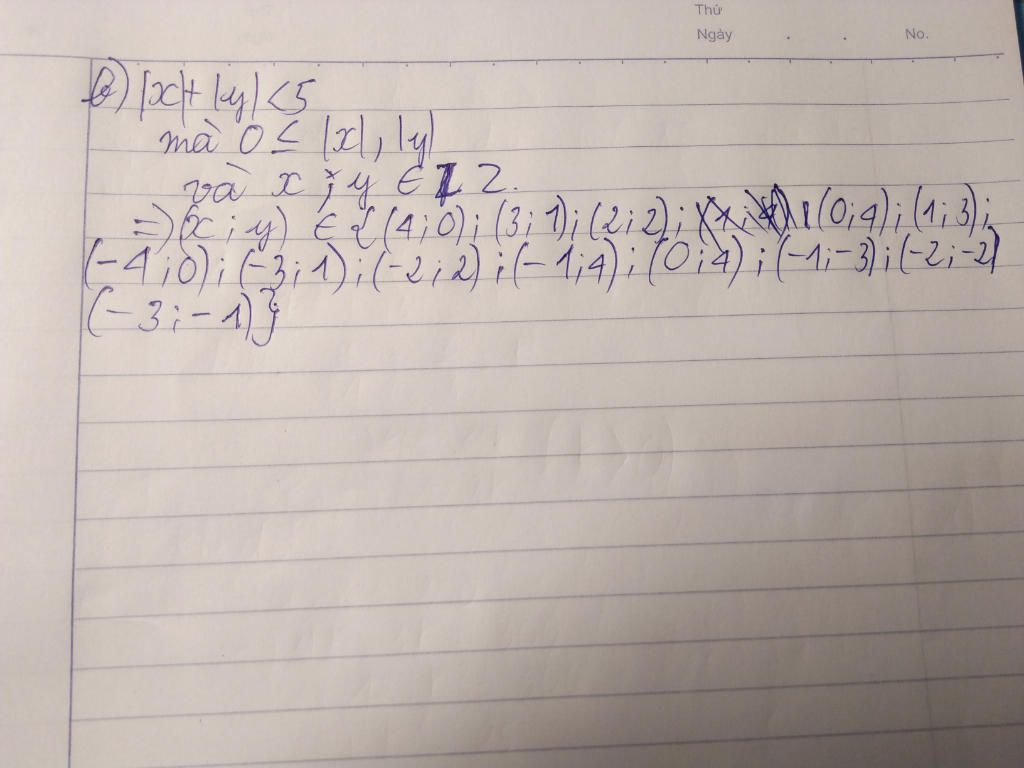 Thứ
Ngày . . No.
b) |x|+ |y| <5
mà 0 ≤ |x| , |y|
và x ; y ∈ Z.
=> (x ; y) ∈ {(4 ; 0) ; (3 ; 1) ; (2 ; 2) ; (0 ; 4) ; (1 ; 3) ;
(-4 ; 0) ; (-3 ; 1) ; (-2 ; 2) ; (-1 ; 4) ; (0 ; 4) ; (-1 ; -3) ; (-2 ; -2)
(-3 ; -1)}